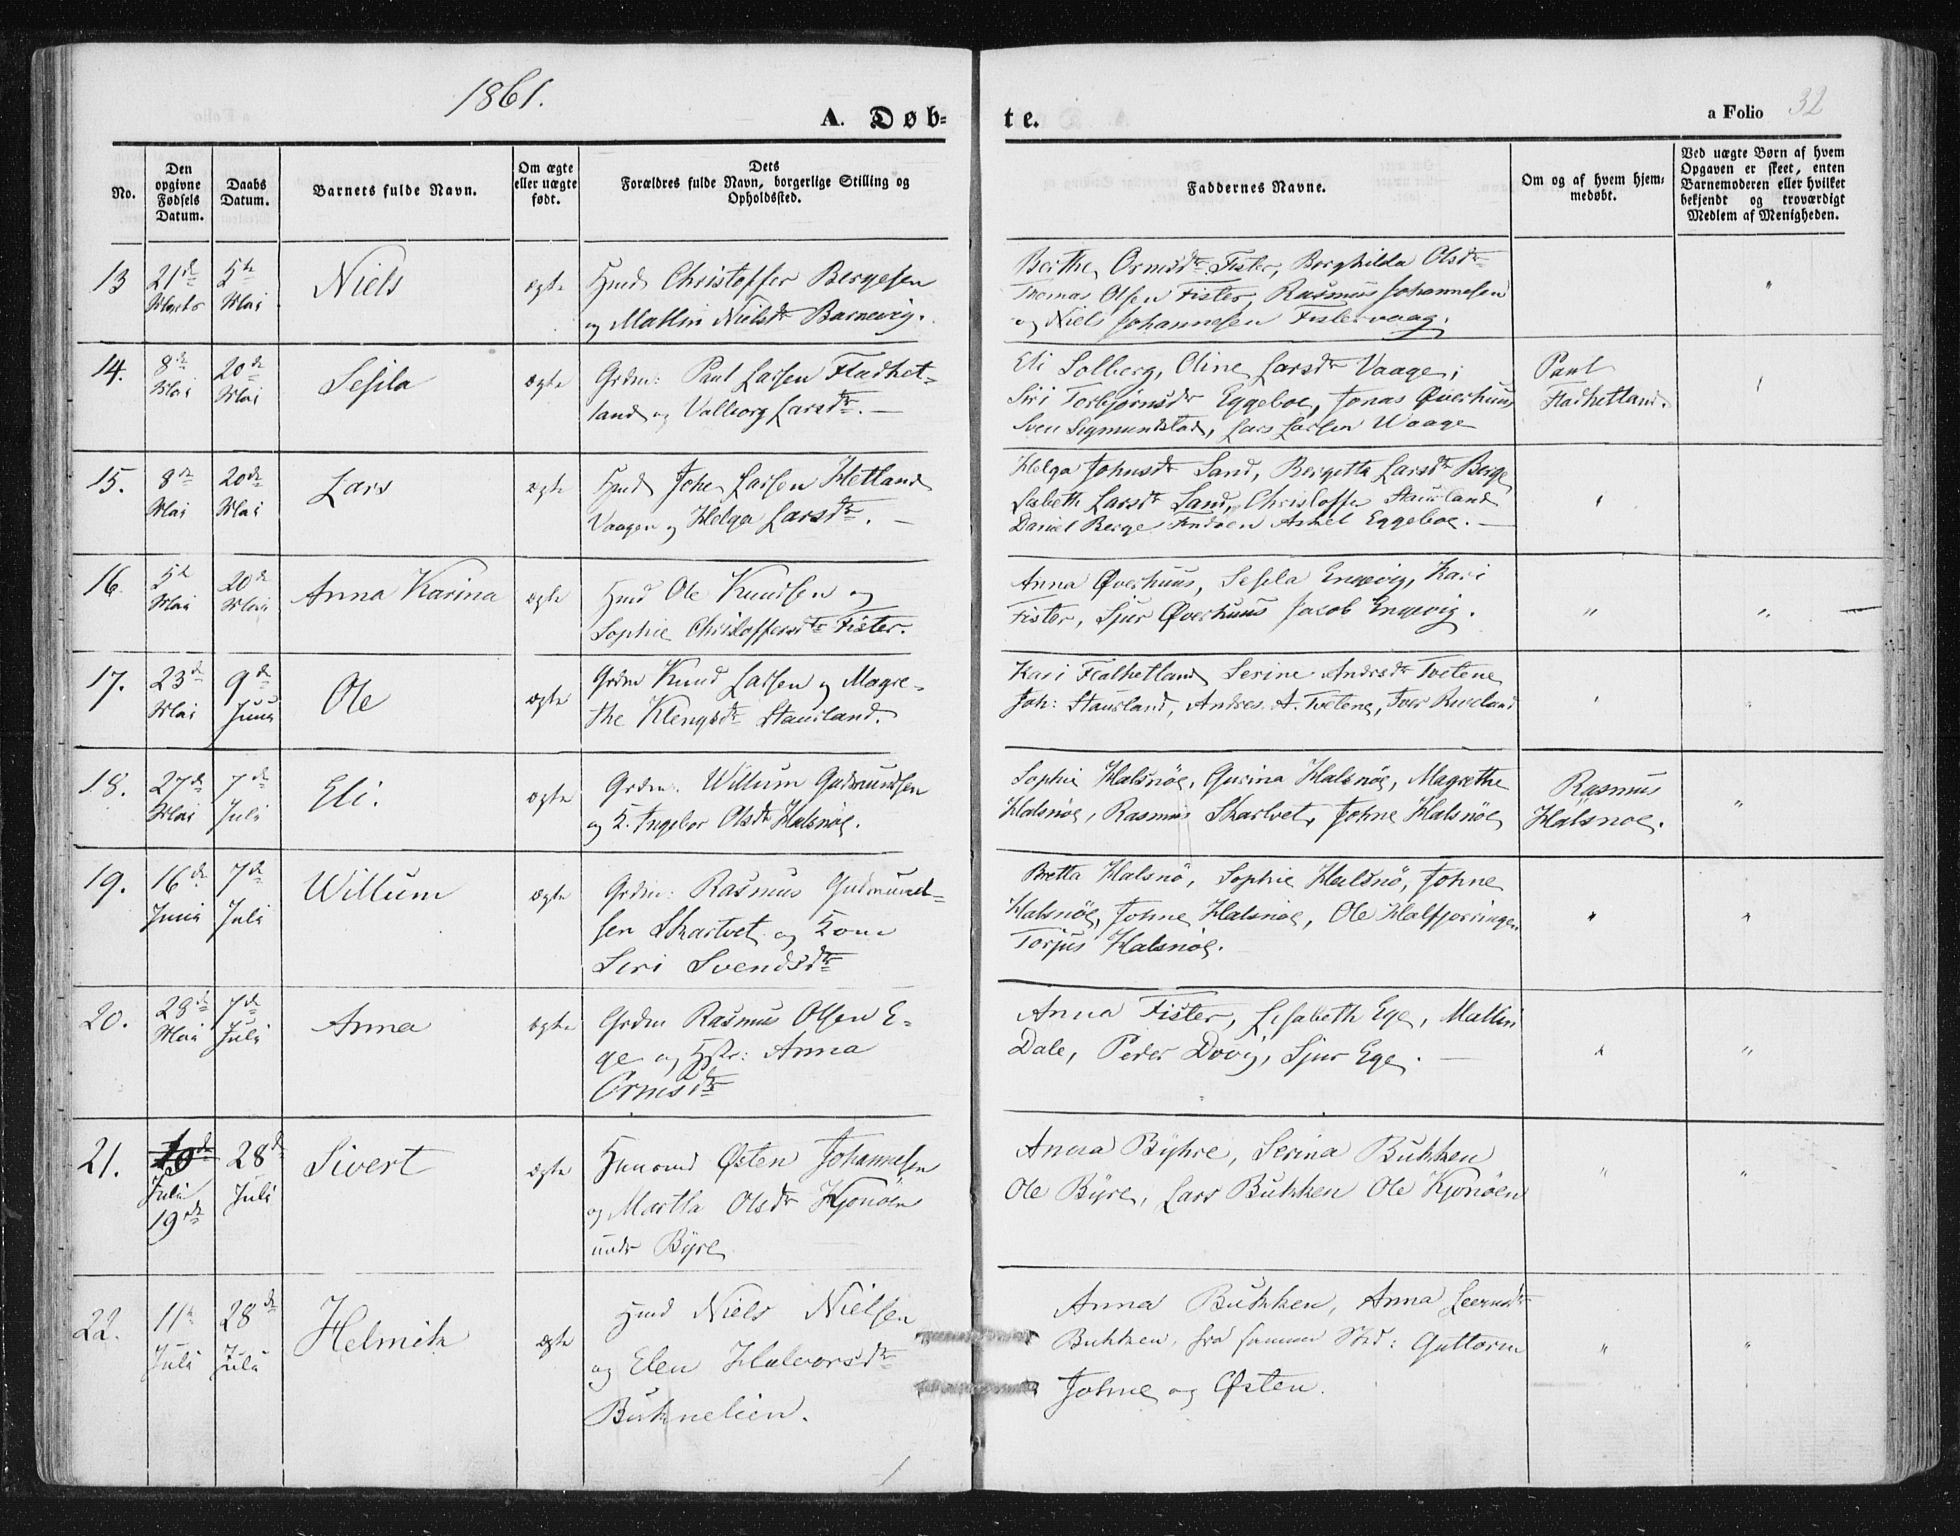 1861.
A. Døb-
te.
a Folio 32
No.
Den opgivne Fødsels Datum.
Daabs Datum.
Barnets fulde Navn.
Om ægte eller uægte født.
Dets Forældres fulde Navn, borgerlige Stilling og Opholdssted.
Faddernes Navne.
Om og af hvem hjemmedøbt.
Ved uægte Børn af hvem Opgaven er skeet, enten Barnemoderen eller hvilket bekjendt og troværdigt Medlem af Menigheden.
13 21de Marts 5te Mai Niels ægte
Hmd Christoffer Bergesen
og Mallin Nielsdtr Barnevig.
Berthe Ormsdtr Fister, Berghilda Olsdtr
Thomas Olsen Fister, Rasmus Johannesen
og Niels Johannesen Fistervaag.
"
14. 8de Mai 20de Mai Sesila ægte
Grdm: Paul Larsen Fladhet-
land og Valborg Larsdtr. —
Eli Solberg, Oline Larsdtr Vaage,
Siri Torbjørnsdtr Eggeboe, Jonas Øverhuus
Sven Sigmundstad, Lars Larsen Waage
Paul
Fladhetland.
15. 8de Mai 20de Mai Lars ægte
Hmd Johe Larsen Hetland
Vaagen og Helga Larsdtr. —
Helga Johnsdtr Sand, Bergitta Larsdtr Berge
Lisbeth Larsdtr Sand, Christoffer Staurland
Daniel Berge Findøen Askel Eggeboe. —
16 5te Mai 20de Mai Anna Karina ægte
Hmd Ole Knudsen og
Sophie Christoffersdtr Fister.
Anna Øverhuus, Sesila Engevig, Kari
Fister, Sjur Øverhuus Jacob Engevig.
" "
17. 23de Mai 9de Juni Ole ægte
Grdm Knud Larsen og Magre-
the Klengsdtr Staurland.
Kari Fladhetland Serine Andrsdtr Tvetene
Joh: Staurland, Andres A. Tvetene, Iver Riveland
18. 27de Mai 7de Juli Eli. ægte
Grdm. Willum Gudmundsen
og K. Ingebor Olsdtr Halsnøe.
Sophie Halsnøe, Gurina Halsnøe, Magrethe
Halsnøe, Rasmus Skartvet, Johne Halsnøe
Rasmus
Halsnøe.
"
19. 16de Juni 7de Juli Willum ægte
Grdm: Rasmus Gudmund-
sen Skartvet og Kone
Siri Svendsdtr
Bretta Halsnø, Sophie Halsnø, Johne
Halsnøe, Johne Halsnøe, Ole Halfjorringen
Torjus Halsnøe.
" "
20. 29de Mai 7de Juli Anna ægte
Grdm Rasmus Olsen E-
ge og Hstr: Anna
Ormsdtr
Anna Fister, Lisabeth Ege, Mallin
Dale, Peder Dovig, Sjur Ege. —
" "
21. 10de Juli 19de 28de Juli Sivert ægte
Huusmd Østen Johannesen
og Martha Olsdtr Kjonøen
undr Byre
Anna Byhre, Serina Bukken
Ole Byre, Lars Bukken Ole Kjonøen
" "
22. 11te Juli 28de Juli Helmik ægte
Hmd Niels Nielsen
og Elen Halvorsdtr
Buknelien.
Anna Bukken, Anna
Bukken, fra samme Sted: Guttorm
Johne og Østen.
" "